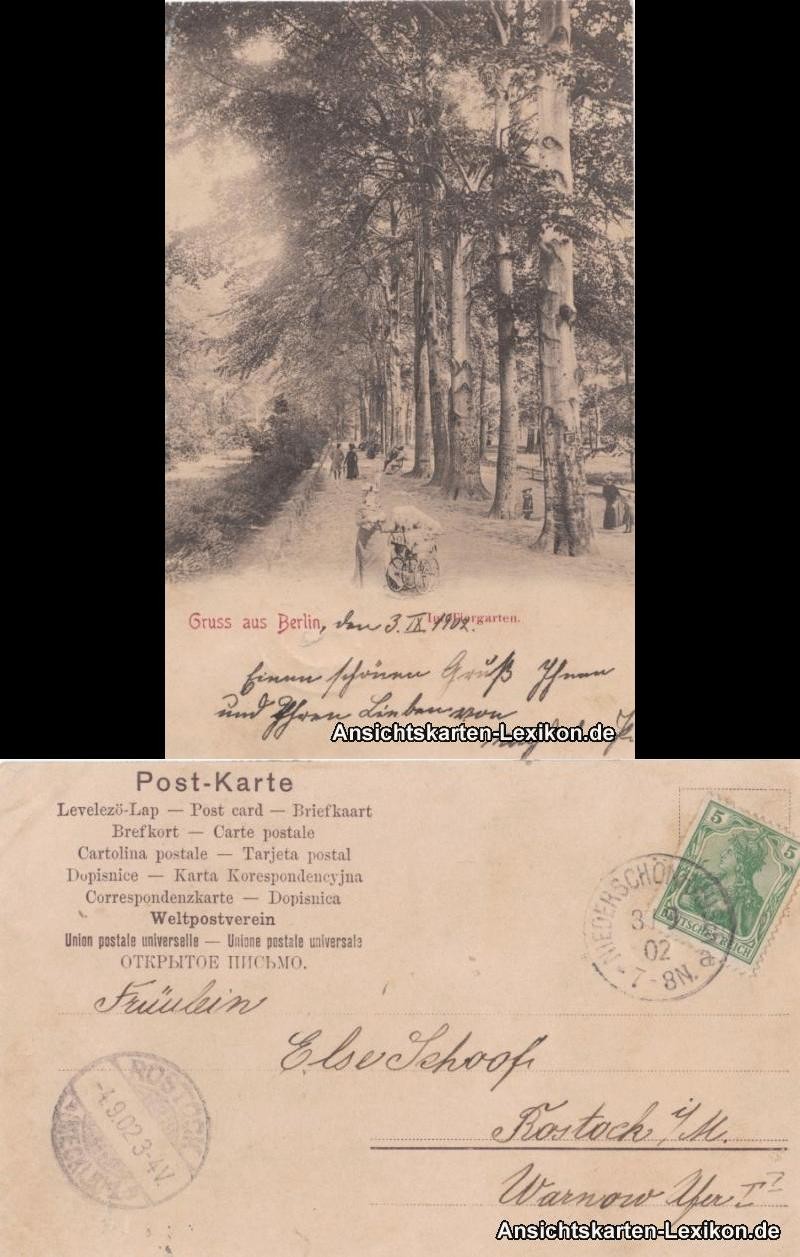 Gruss aus Berlin, den 3. IX 1902.
Im Tiergarten.
Einen schönen Gruß Ihnen
und Ihren Lieben von
Ansichtskarten-Lexikon.de
Post-Karte
Levelező-Lap — Post card — Briefkaart
Brefkort — Carte postale
Cartolina postale — Tarjeta postal
Dopisnice — Karta Korespondencyjna
Correspondenzkarte — Dopisnica
Weltpostverein
Union postale universelle — Unione postale universale
ОТКРЫТОЕ ПИСЬМО.
5 5
DEUTSCHES REICH
NIEDERSCHÖN
3
02
7-8N. a
Fräulein
Else Schoof
ROSTOCK
-4.9.02 3-4V.
(MECKLB.)
Rostock i/M.
Warnow Ufer
Ansichtskarten-Lexikon.de